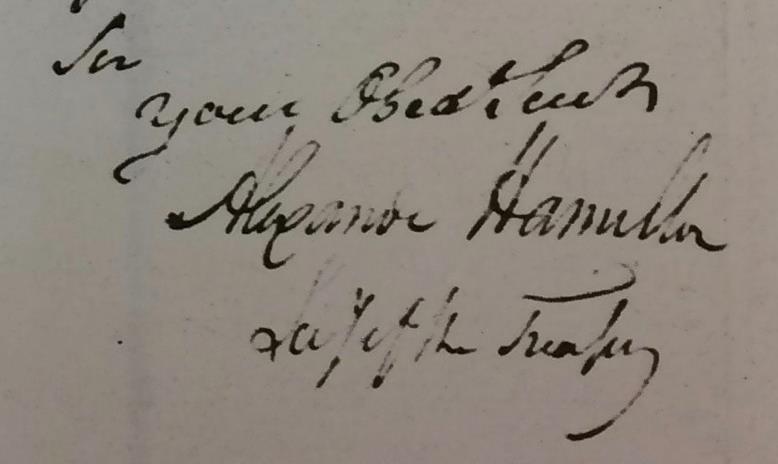 Sir
your Obed Servt
Alexander Hamilton
Sec'y of the Treasury